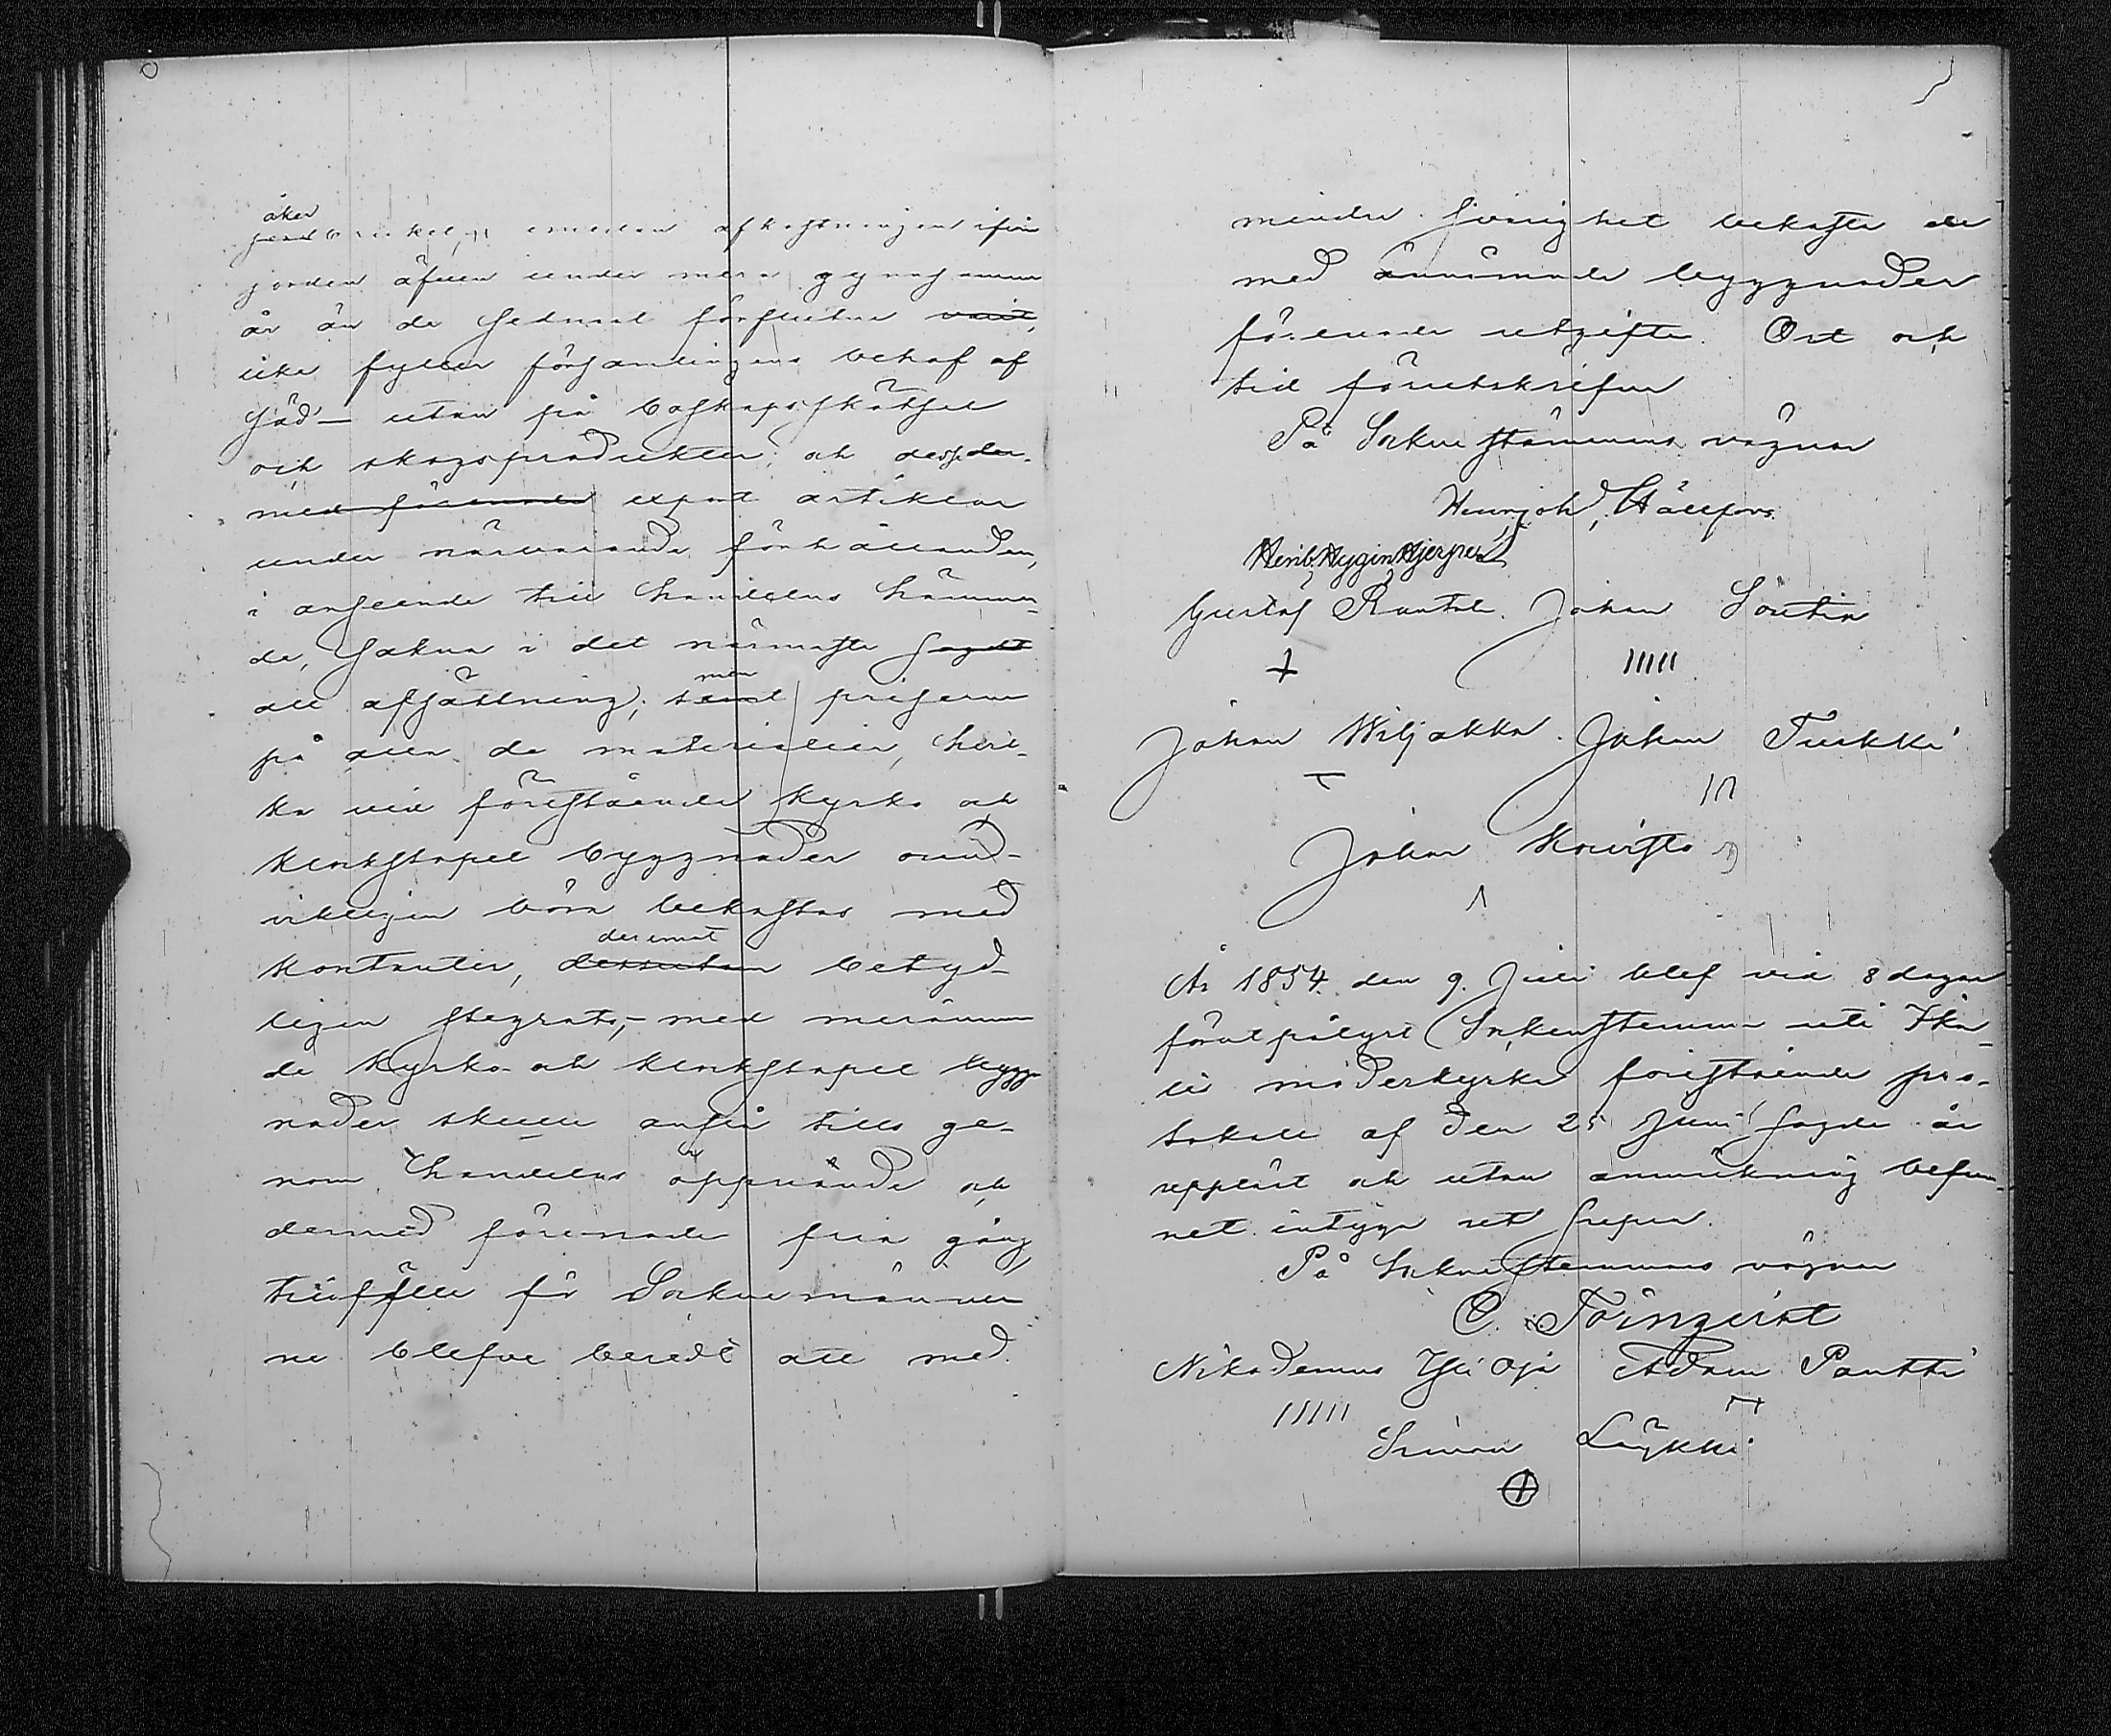 åker
jordbruket, emedan afkastningen ifrån
jorden äfven under mera gynnsamma
år än de sednast förflutna varit,
icke fyller församlingens behof af
säd – utan på boskapsskötsel
och skogsprodukter; och dess der-
med förenade export artiklar
under närvarande förhållanden,
i anseende till handelns hämman-
de, sakna i det närmaste sagdt
all afsättning; men samt priserne
på alla de materialier, hvil-
ka vid föreståendе kyrko och
klockstapel byggnader ound-
vikligen böra bekostas med
kontanter, deremot dessutom betyd-
ligen stegrats, – med merämnn-
de kyrko- och klockstapel bygg-
nader skulle anstå tills ge-
nom handelns öppnande och
dermed förenade fria gång
tillfälle för Sockenmännen
ne blefve beredt att med
mindre svårighet bekosta de
med ännämnde byggnader
förenade utgifter. Ort och
tid förutskrifne
På Sockne stämmans vägnar
Henr. Joh. Hällfors.
Henr. Hyggin Hjerpe
Gustaf Rantala. Johan Sontin
Johan Wiljakka. Johan Turkki
Johan Koivisto
År 1854 den 9. Juli blef vid 8 dagar
förut pålyst Sockenstemma uti Ika-
lis moderkyrka föreståendе pro-
tokoll af den 25 Juni sagde år
uppläst och utan anmärkning befun-
net. intyga ut supra.
På Sockne stemmans vägnar
C. Törnqvist
Nikodemus Yli Oja Adam Pantti
Simon Löykki